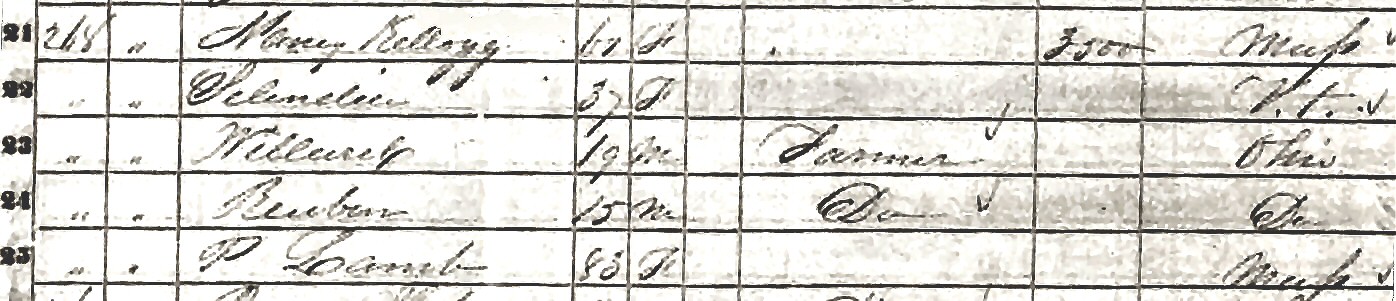 21 268 " Nancy Kellogg 60 F 3500 Mass
22 " " 37 F V.t.
23 " " Willard 19 M Farmer Ohio
24 " " Reuben 15 M Do Do
25 " " P Lamb 83 F Mass